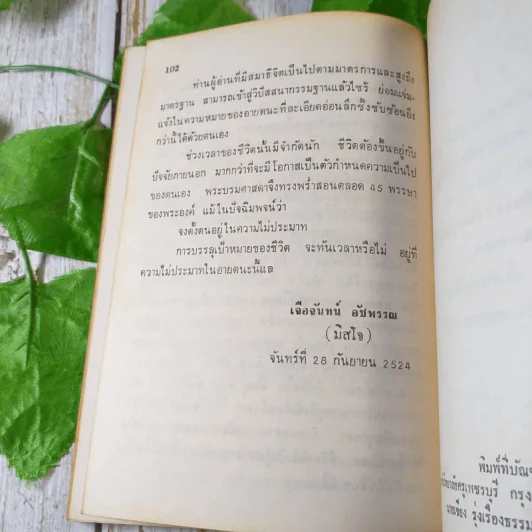 102
ท่านผู้อ่านที่มีสมาธิจิตเป็นไปตามมาตรการและสูงถึง
มาตรฐาน สามารถเข้าสู่วิปัสสนากรรมฐานแล้วไซร้ ย่อมแจ่ม-
แจ้งในความหมายของอายตนะที่ละเอียดอ่อนลึกซึ้งซับซ้อนยิ่ง
กว่านี้ได้ด้วยตนเอง
ช่วงเวลาของชีวิตนั้นมีจำกัดนัก ชีวิตต้องขึ้นอยู่กับ
ปัจจัยภายนอก มากกว่าที่จะมีโอกาสเป็นตัวกำหนดความเป็นไป
ของตนเอง พระบรมศาสดาจึงทรงพร่ำสอนตลอด 45 พรรษา
ของพระองค์ แม้ในปัจฉิมพจน์ว่า
จงตั้งตนอยู่ในความไม่ประมาท
การบรรลุเป้าหมายของชีวิต จะทันเวลาหรือไม่ อยู่ที่
ความไม่ประมาทในอายตนะนี้แล
เจือจันทน์ อัชพรรณ
(มิสโจ)
จันทร์ที่ 28 กันยายน 2524
พิมพ์ที่บัณ
เพชรบุรี กรุง
รุ่งเรืองธรร